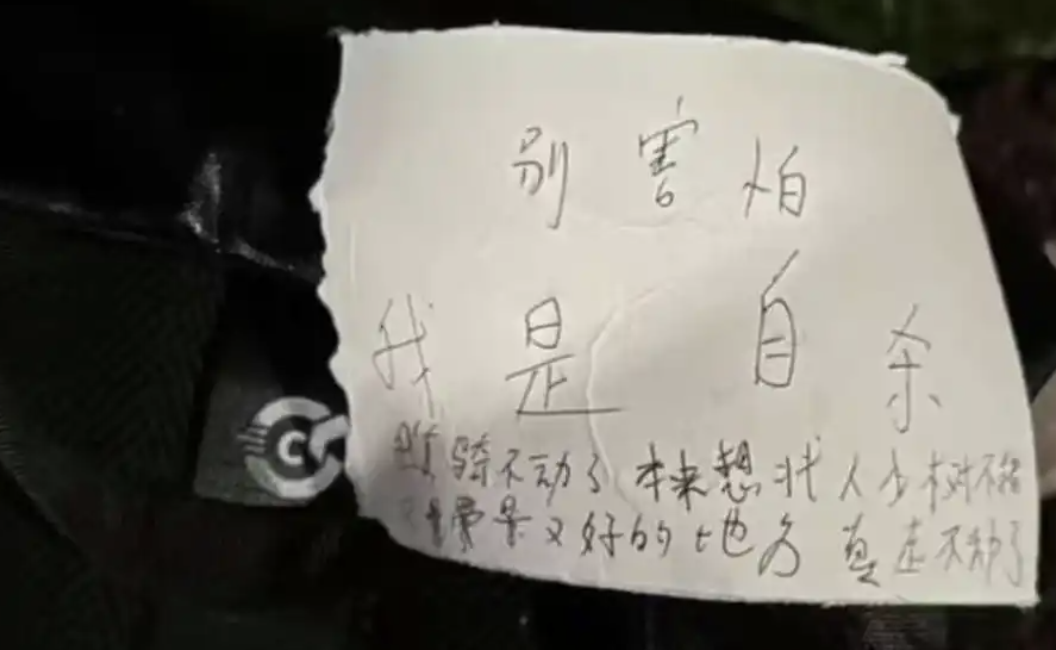 别害怕
我是自杀
骑不动了 本来想找人少树不
景又好的地方 真走不动了